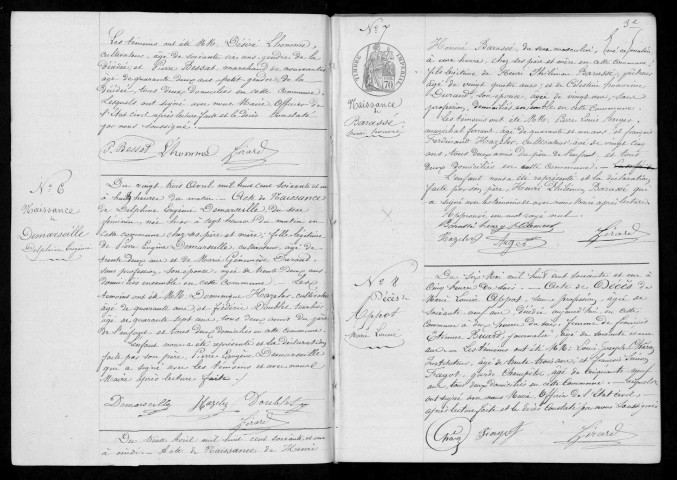 Les témoins ont été MMrs Désiré Lhomme,
cultivateur, âgé de soixante six ans, gendre de la
décédée et Pierre Bessot, marchand de nouveautés
âgé de quarante deux ans, petit-gendre de la
décédée, tous deux domiciliés en cette commune.
Lesquels ont signé avec nous Maire, Officier de
l'Etat civil après lecture faite et le décès constaté
par nous soussigné.
P. Bessot Lhomme Girard
N° 6
Naissance
de
Demarseille
Delphine Eugénie
Du vingt trois Avril mil huit cent soixante et un
à huit heures du matin. Acte de Naissance
de Delphine Eugénie Demarseille du sexe
féminin, née hier à sept heures du matin en
cette commune chez ses père et mère; fille légitime
de Pierre Eugène Demarseille, cultivateur, âgé de
trente deux ans et de Marie Geneviève
sans profession, son épouse, âgée de trente deux ans
domiciliés ensemble en cette commune. Les
témoins ont été MMrs Dominique Hazeler, cultivateur
âgé de quarante ans et Frédéric Doublet
âgé de quarante sept ans, tous deux amis du père
de l'enfant et tous deux domiciliés en cette commune.
L'enfant nous a été représenté et la déclaration
faite par son père, Pierre Eugène Demarseille
qui a signé avec les témoins et avec nous
Maire après lecture faite.
Demarseille Hazeler Doublet
Girard
Du trente Avril mil huit cent soixante et un
à midi. Acte de Naissance de Henri
3e
N° 7
TIMBRE IMPÉRIAL
70
Naissance
de
Barassé
Honoré Barassé du sexe masculin,
à une heure, chez ses père et mère en cette commune;
fils légitime de Henri Philemon Barassé,
âgé de vingt quatre ans, et de Célestine
son épouse, âgée de vingt ans, sans
profession, domiciliés ensemble en cette commune.
Les témoins ont été MMrs Pierre Louis Auger,
maréchal ferrant, âgé de quarante et un ans, et François
Ferdinand Hazeler, cultivateur, âgé de vingt cinq
ans, tous deux amis du père de l'enfant et tous
deux domiciliés en cette commune.
L'enfant nous a été représenté et la déclaration
faite par son père, Henri Philemon Barassé qui
a signé avec les témoins et avec nous Maire après lecture.
Approuvé un mot rayé nul.
Barassé henry philemon
Hazeler Auger Girard
N° 8
Décès
de
Appot
Marie Louise
Du six Mai mil huit cent soixante et un à
cinq heures du soir. Acte de Décès de
Marie Louise Appot, sans profession, âgée de
soixante neuf ans, décédée aujourd'hui en cette
commune à deux heures du soir, femme de François
Etienne journalier, âgé de soixante et un
ans. Les témoins ont été MMrs Louis Joseph
Instituteur, âgé de trente trois ans et François
garde champêtre, âgé de cinquante neuf
ans tous deux domiciliés en cette commune. Lesquels
ont signé avec nous Maire Officier de l'Etat civil
après lecture faite et le décès constaté par nous soussigné
Girard